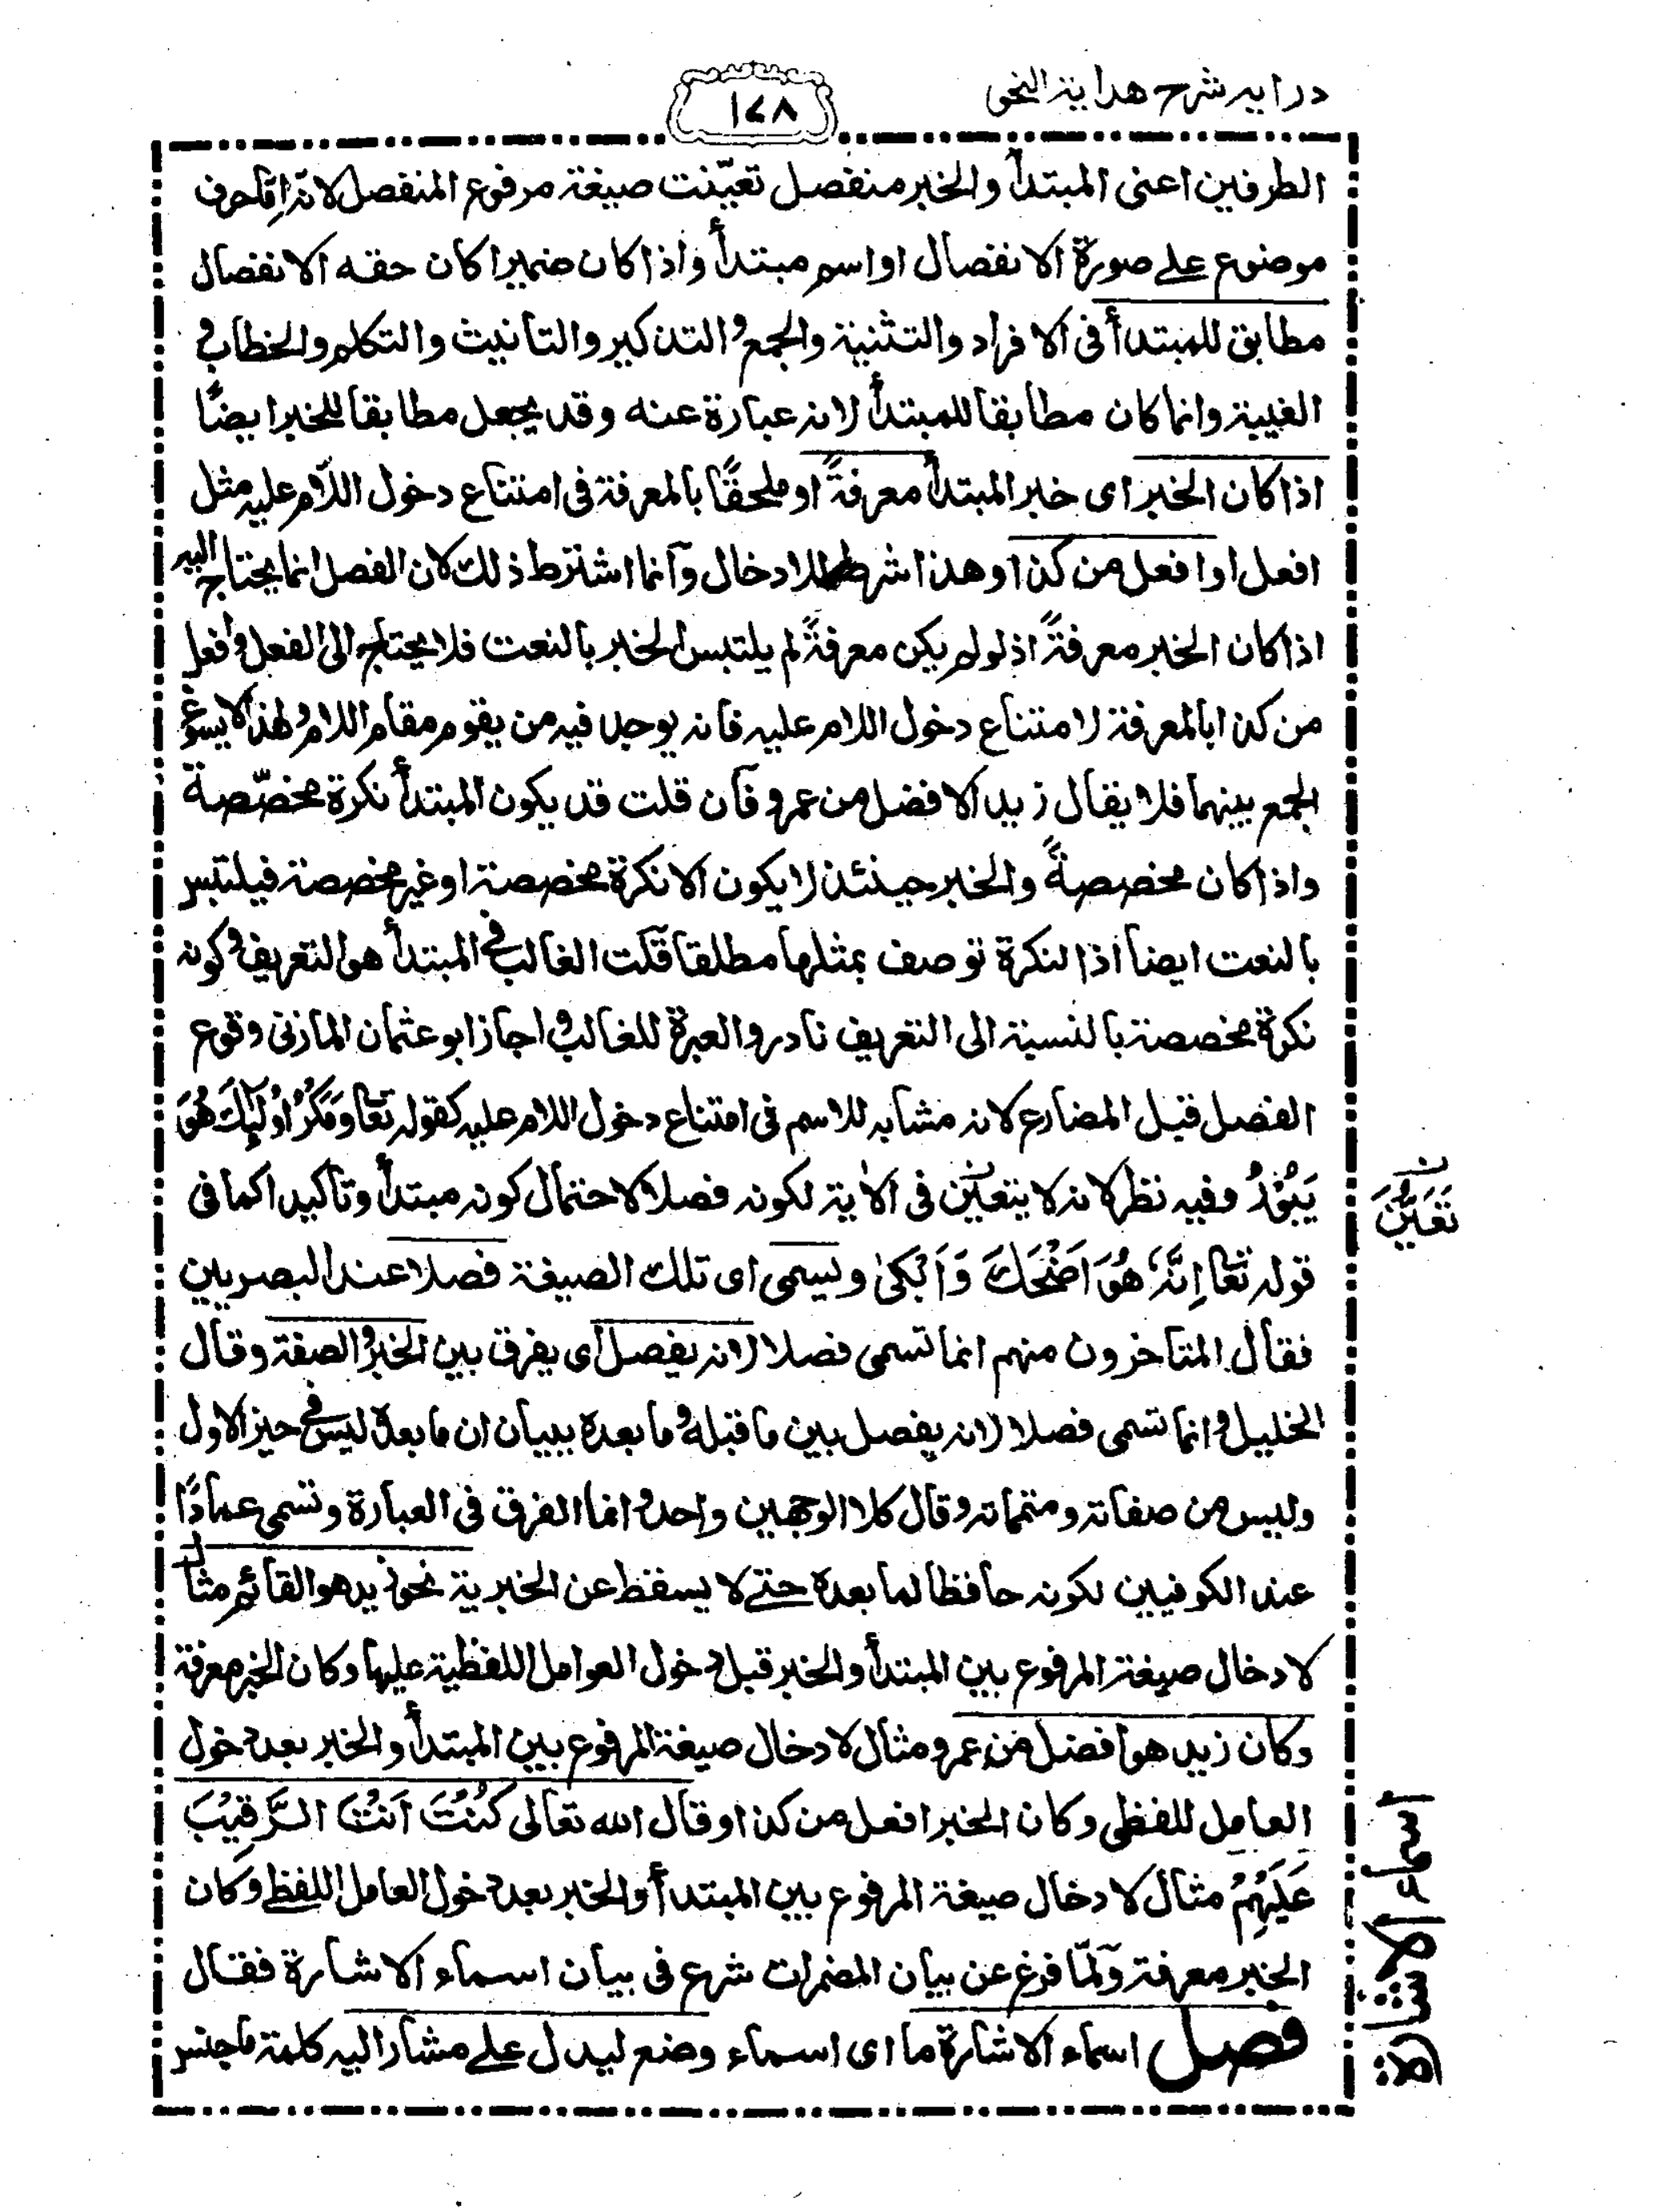 درايه شرح هداية النحو
١٤٨
الطرفين اعنى المبتدأ والخبر منفصل تعيّنت صيغة مرفوع المنفصل لانه اما حرف
موضوع على صورة الانفصال او اسم مبتدأ واذا كان ضميرا كان حقه الانفصال
مطابق للمبتدأ فى الافراد والتثنية والجمع والتذكير والتأنيث والتكلم والخطاب و
الغيبة وانما كان مطابقا للمبتدأ لانه عبارة عنه وقد يجعل مطابقا للخبر ايضًا
اذا كان الخبر اى خبر المبتدأ معرفةً او ملحقًا بالمعرفة فى امتناع دخول اللّام عليه مثل
افعل او افعل من كذا وهذا شرط للادخال وانما اشترط ذلك لان الفصل انما يحتاج اليه
اذا كان الخبر معرفةً اذ لو لم يكن معرفةً لم يلتبس الخبر بالنعت فلا يحتاج الى الفعل وافعل
من كذا بالمعرفة لامتناع دخول اللام عليه فانه يوجد فيه من يقوم مقام اللام ولهذا لا يسوغ
الجمع بينهما فلا يقال زيد الافضل من عمرو فان قلت قد يكون المبتدأ نكرة مخصّصة
واذا كان مخصصةً والخبر حينئذ لا يكون الا نكرة مخصصة او غير مخصصة فيلتبس
بالنعت ايضا اذ النكرة توصف بمثلها مطلقا قلت الغالب فى المبتدأ هو التعريف وكونه
نكرة مخصصة بالنسبة الى التعريف نادر والعبرة للغالب و اجاز ابو عثمان المازنى وقوع
الفصل قبل المضارع لانه مشابه للاسم فى امتناع دخول اللام عليه كقوله تعا وَمَكْرُ اُولٰئِكَ هُوَ
يَبُوْرُ وفيه نظر لانه لا يتعين فى الاٰية لكونه فصلا لاحتمال كونه مبتدأ وتاكيدا كما فى
قوله تعا اِنَّهٗ هُوَ اَضْحَكَ وَاَبْكٰى ويسمى اى تلك الصيغة فصلا عند البصريين
فقال المتاخرون منهم انما تسمى فصلا لانه يفصل اى يفرق بين الخبر والصفة وقال
الخليل و انما تسمى فصلا لانه يفصل بين ما قبله وما بعده ببيان ان ما بعده ليس فى حيز الاول
وليس من صفاته ومتمماته وقال كلا الوجهين واحد و انما الفرق فى العبارة وتسمى عمادًا
عند الكوفيين لكونه حافظا لما بعده حتى لا يسقط عن الخبرية نحو زيد هو القائم مثال
لادخال صيغة المرفوع بين المبتدأ والخبر قبل دخول العوامل اللفظية عليها وكان الخبر معرفة
وكان زيد هو افضل من عمرو مثال لادخال صيغة المرفوع بين المبتدأ والخبر بعد دخول
العامل للفظى وكان الخبر افعل من كذا وقال الله تعالى كُنْتَ اَنْتَ الرَّقِيْبَ
عَلَيْهِمْ مثال لادخال صيغة المرفوع بين المبتدأ والخبر بعد دخول العامل اللفظى وكان
الخبر معرفة ولمّا فرغ عن بيان المضمرات شرع فى بيان اسماء الاشارة فقال
فصل اسماء الاشارة ما اى اسماء وضع ليدل على مشار اليه كلمة ما جنس
اسماء الاشارة